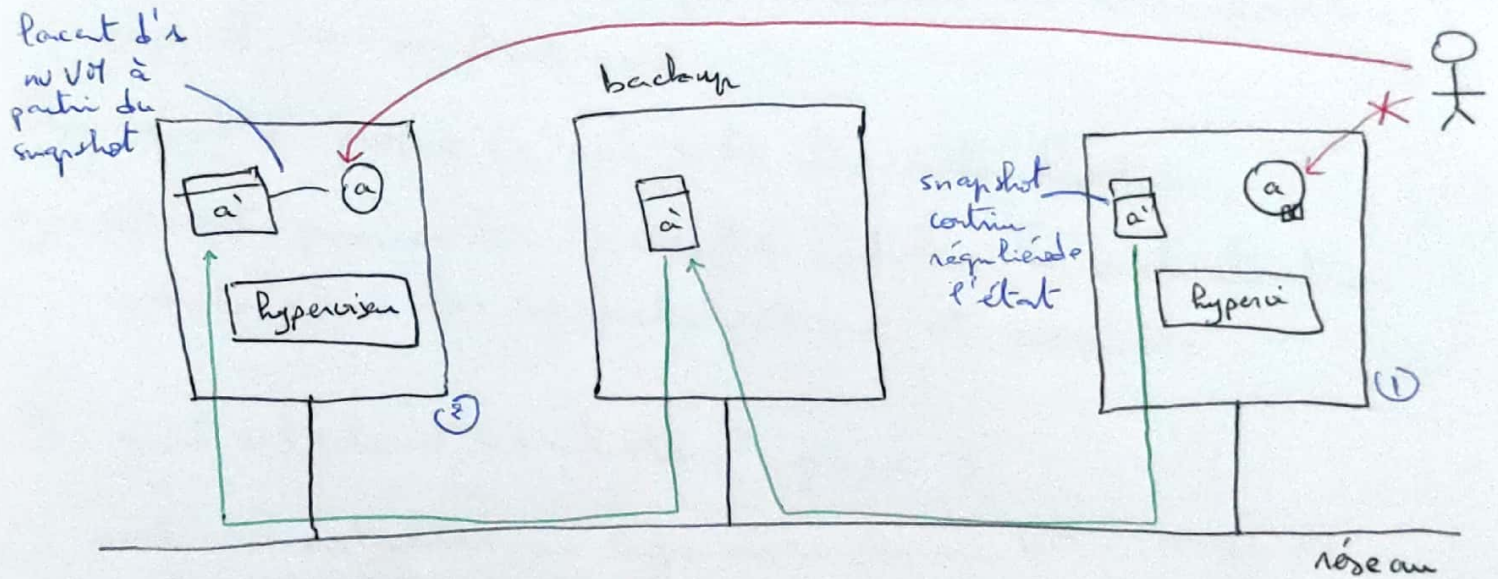 d's
VM à
partir du
snapshot
a'
a
hyperviseu
2
backup
a'
snapshot
continu
régulière de
l'état
a'
a
hypervi
1
réseau